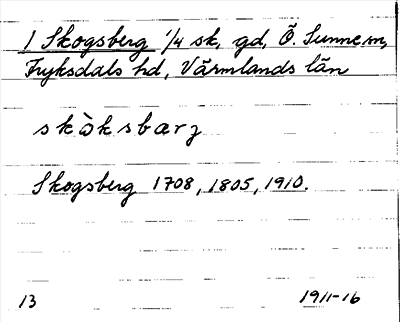 1 Skogsberg 1/4 sk, gd, Ö. Sunne sn,
Fryksdals hd, Värmlands län
skòksbærj
Skogsberg 1708, 1805, 1910.
13 1911-16